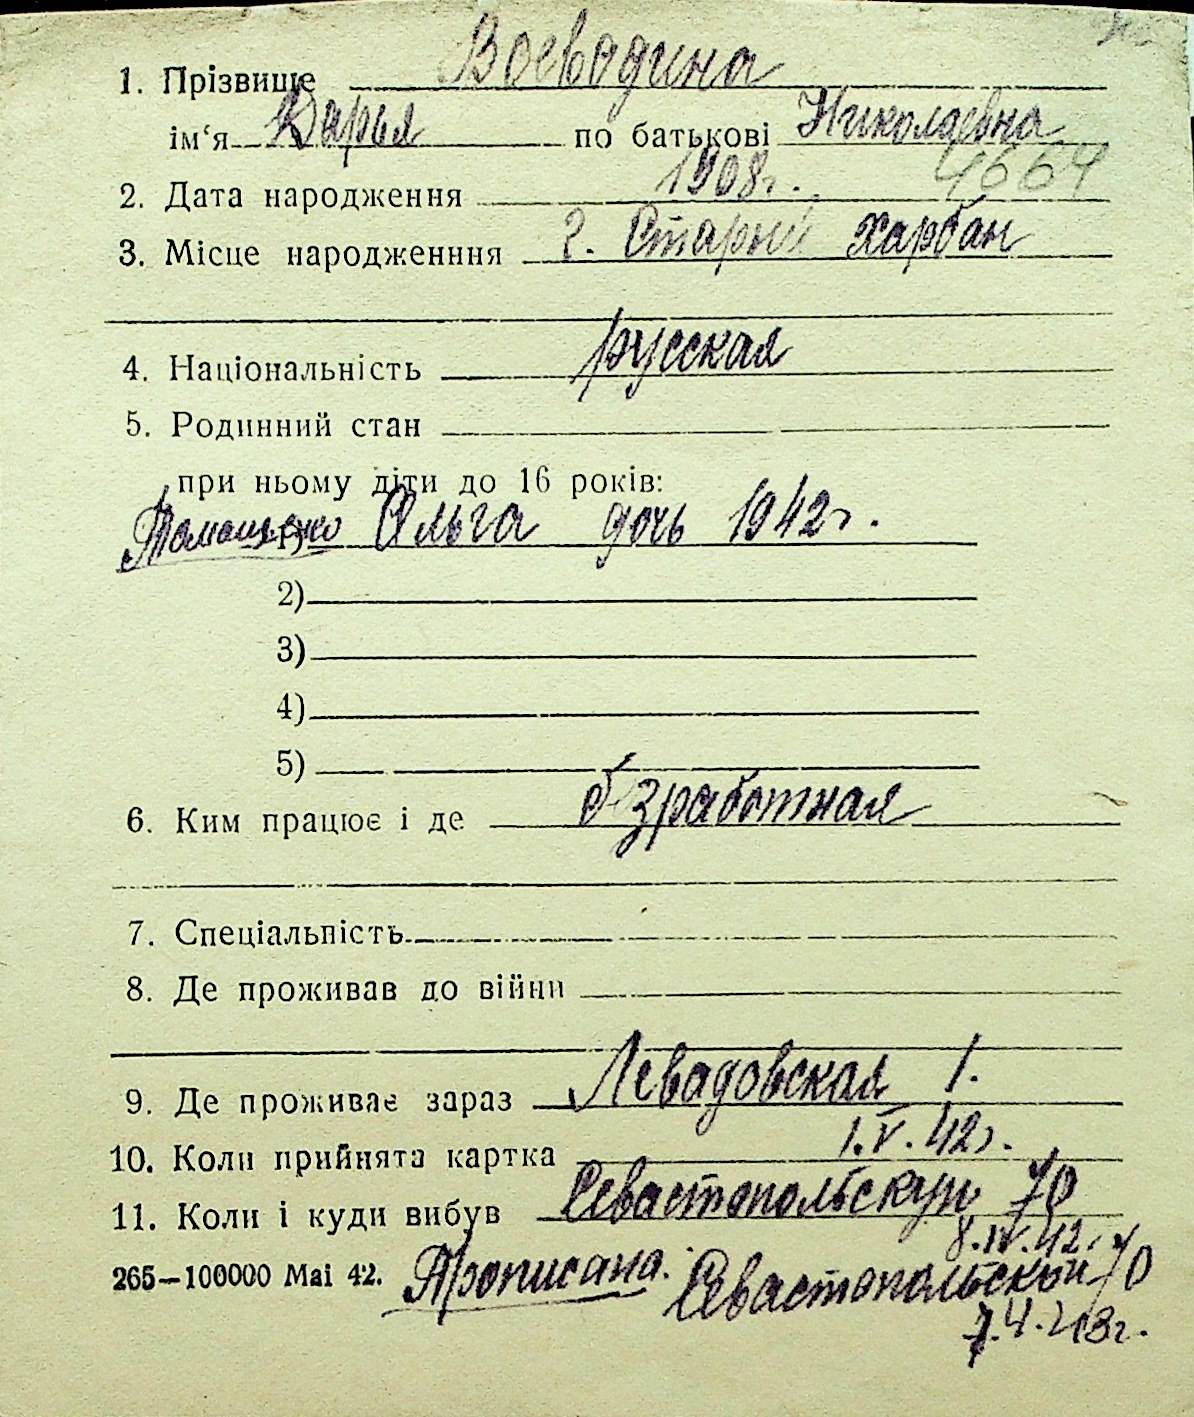 1. Прізвище Воеводина
ім‘я Дарья по батькові Николаевна
4664
2. Дата народження 1908г.
3. Місце народженння г. Старый Харбан
4. Національність русская
5. Родинний стан
при ньому діти до 16 років:
1) Томащенко Ольга дочь 1942г.
2)
3)
4)
5)
6. Ким працює і де безработная
7. Спеціальність
8. Де проживав до війни
9. Де проживає зараз Левадовская 1.
10. Коли прийнята картка 1.V.42г.
11. Коли і куди вибув Севастопольскую 70
8.IV.42г.
265—100000 Mai 42. Прописана. Севастопольской 70
7.4.43г.